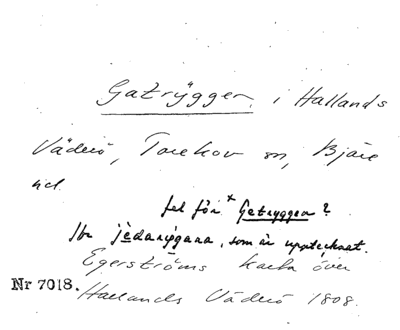 Gatryggen, i Hallands
Väderö, Torekov sn, Bjäre
hd.
fel för * Getryggen?
Jfr jèdarýgana, som är upptecknat.
Egerströms karta över
Nr 7018. Hallands Väderö 1808.